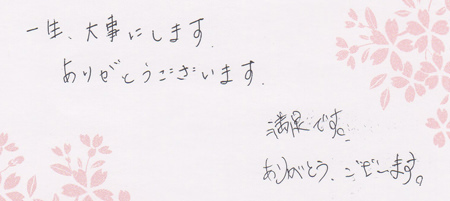 一生、大事にします.
ありがとうございます.
満足です。
ありがとう、ございます。